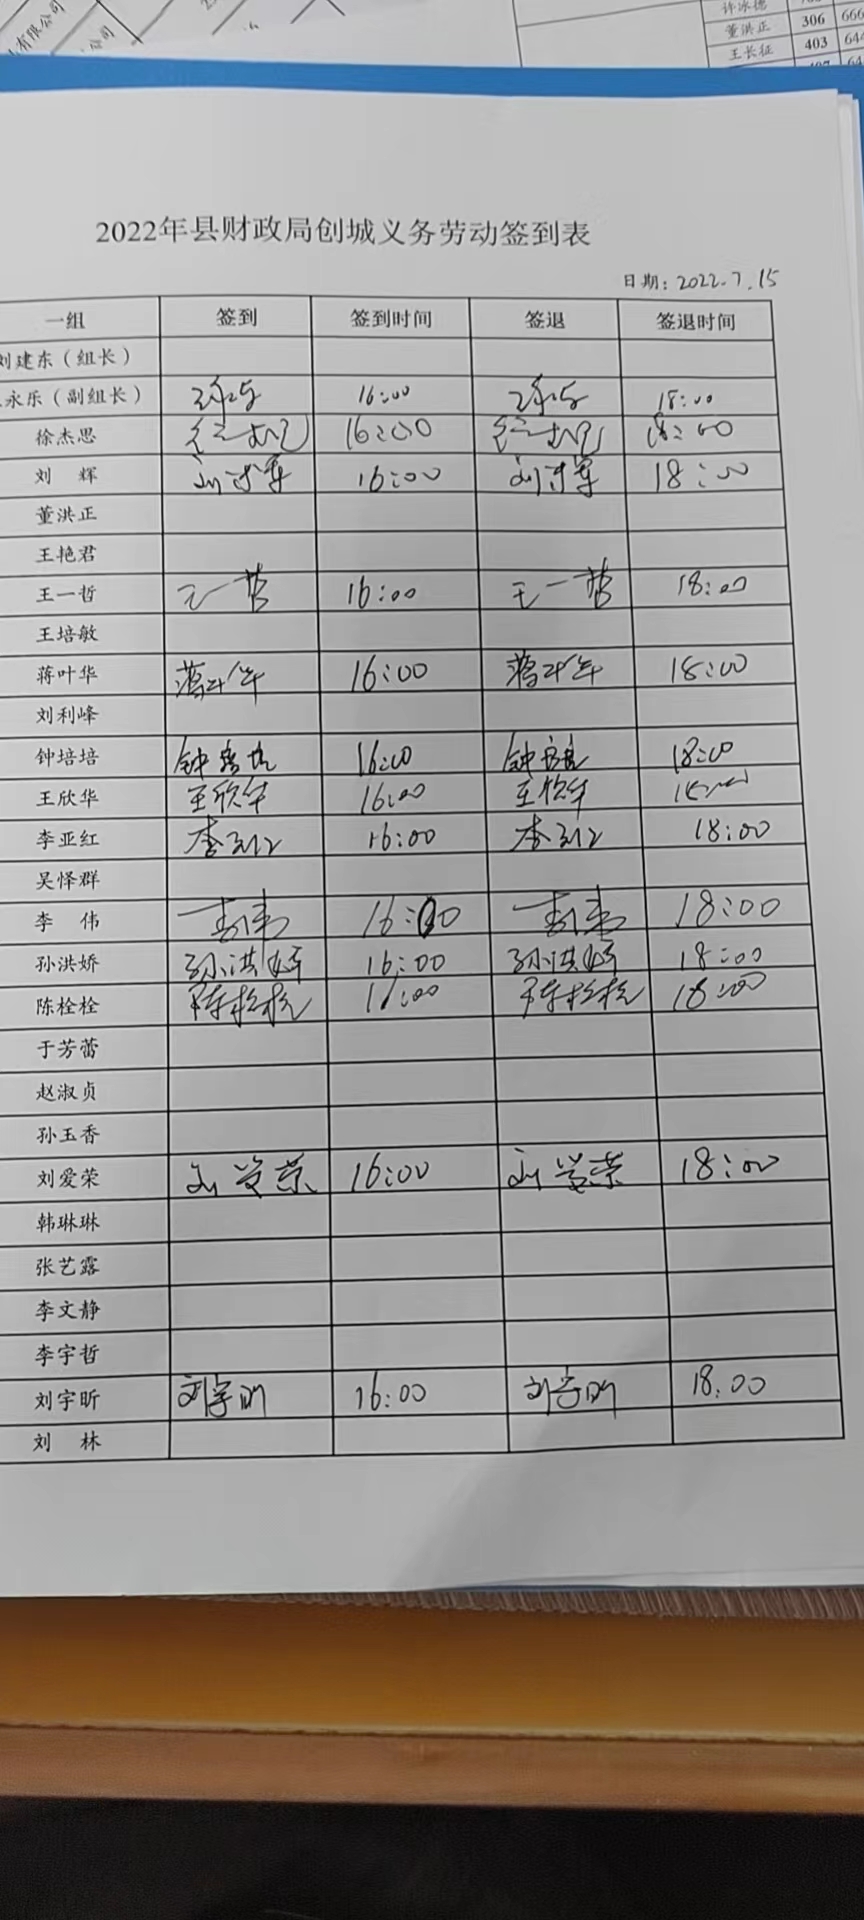 有限公司
公司
许泳德
董洪正 306 666
王长征 403 644
2022年县财政局创城义务劳动签到表
日期：2022.7.15
一组 签到 签到时间 签退 签退时间
刘建东（组长）
永乐（副组长） 16:00 18:00
徐杰思 16:00 18:00
刘 辉 16:00 18:00
董洪正
王艳君
王一哲 王一哲 16:00 王一哲 18:00
王培敏
蒋叶华 蒋叶华 16:00 蒋叶华 18:00
刘利峰
钟培培 钟培培 16:00 钟培培 18:00
王欣华 王欣华 16:00 王欣华
李亚红 李亚红 16:00 李亚红 18:00
吴怿群
李 伟 李伟 16:00 李伟 18:00
孙洪娇 孙洪娇 16:00 孙洪娇 18:00
陈栓栓 陈栓栓 16:00 陈栓栓 18:00
于芳蕾
赵淑贞
孙玉香
刘爱荣 刘爱荣 16:00 刘爱荣 18:00
韩琳琳
张艺露
李文静
李宇哲
刘宇昕 刘宇昕 16:00 刘宇昕 18.00
刘 林